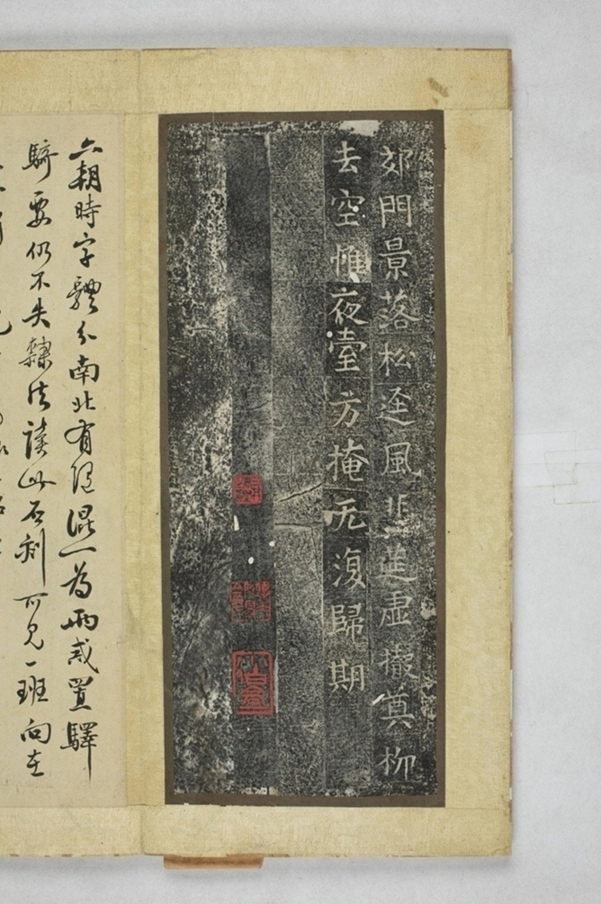 郊門景落松迳風悲莚虛撤奠柳
去空帷夜臺方掩无復歸期
六朝時字體分南北有隋混一為兩戒置驛
騎要仍不失隸法讀此石刻可見一班向在